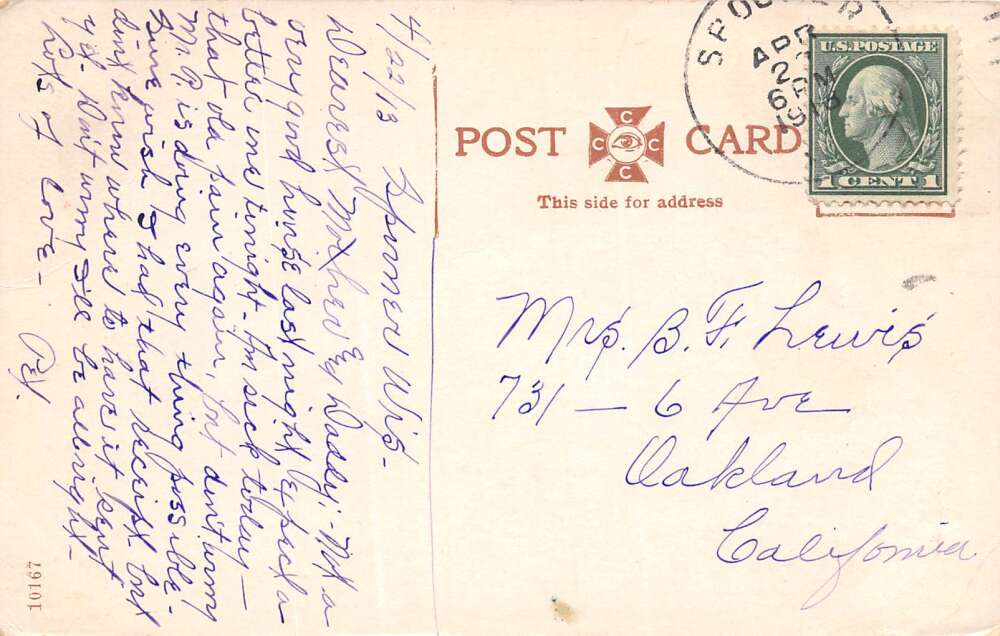 4/22/13 Spooner Wis-
Dearest Mother & Daddy:- Not a
very good hinge last night. Expect a
better one tonight. Am sick today -
that old pain again, but don't worry
Mr. P. is doing every thing possible -
Sure wish I had that receipt but
dint know where to have it sent
yet. Don't worry I'll be allright -
Lots of love -
10167
POST CARD
C C C C
This side for address
SPOONER
APR
6 PM
U.S. POSTAGE
1 CENT 1
Mrs. B. F. Lewis
731 - 6 Ave
Oakland
California